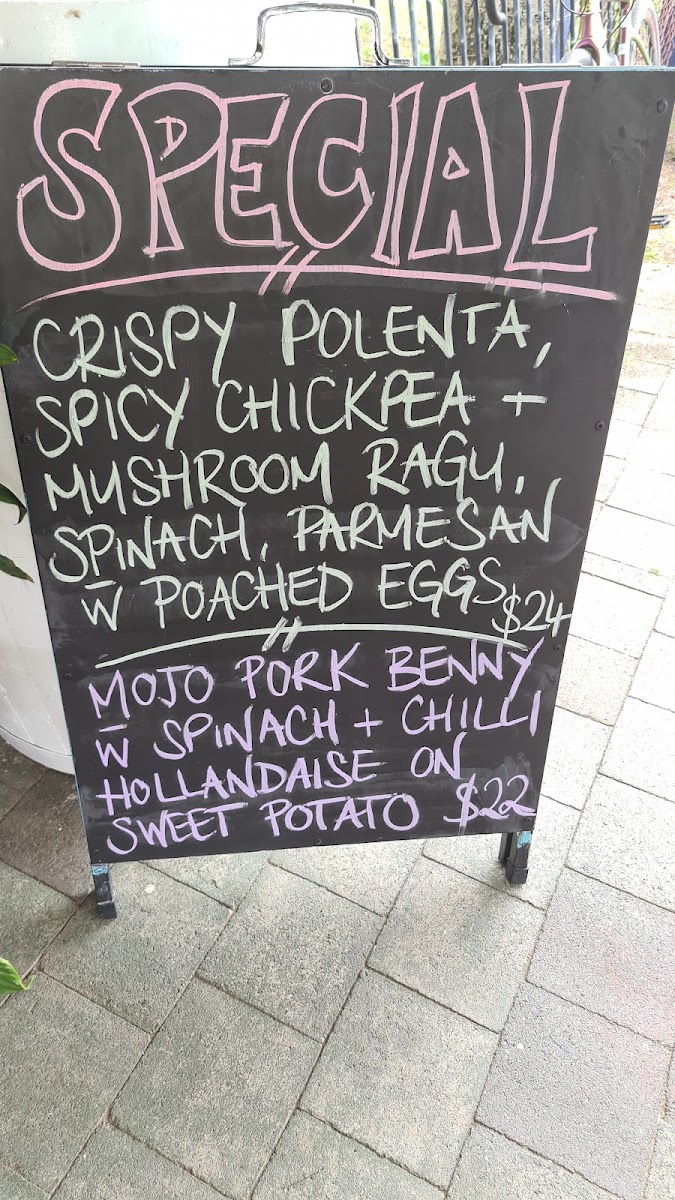 SPECIAL
CRISPY POLENTA,
SPICY CHICKPEA +
MUSHROOM RAGU,
SPINACH, PARMESAN
W̄ POACHED EGGS $24
MOJO PORK BENNY
W̄ SPINACH + CHILLI
HOLLANDAISE ON
SWEET POTATO $22